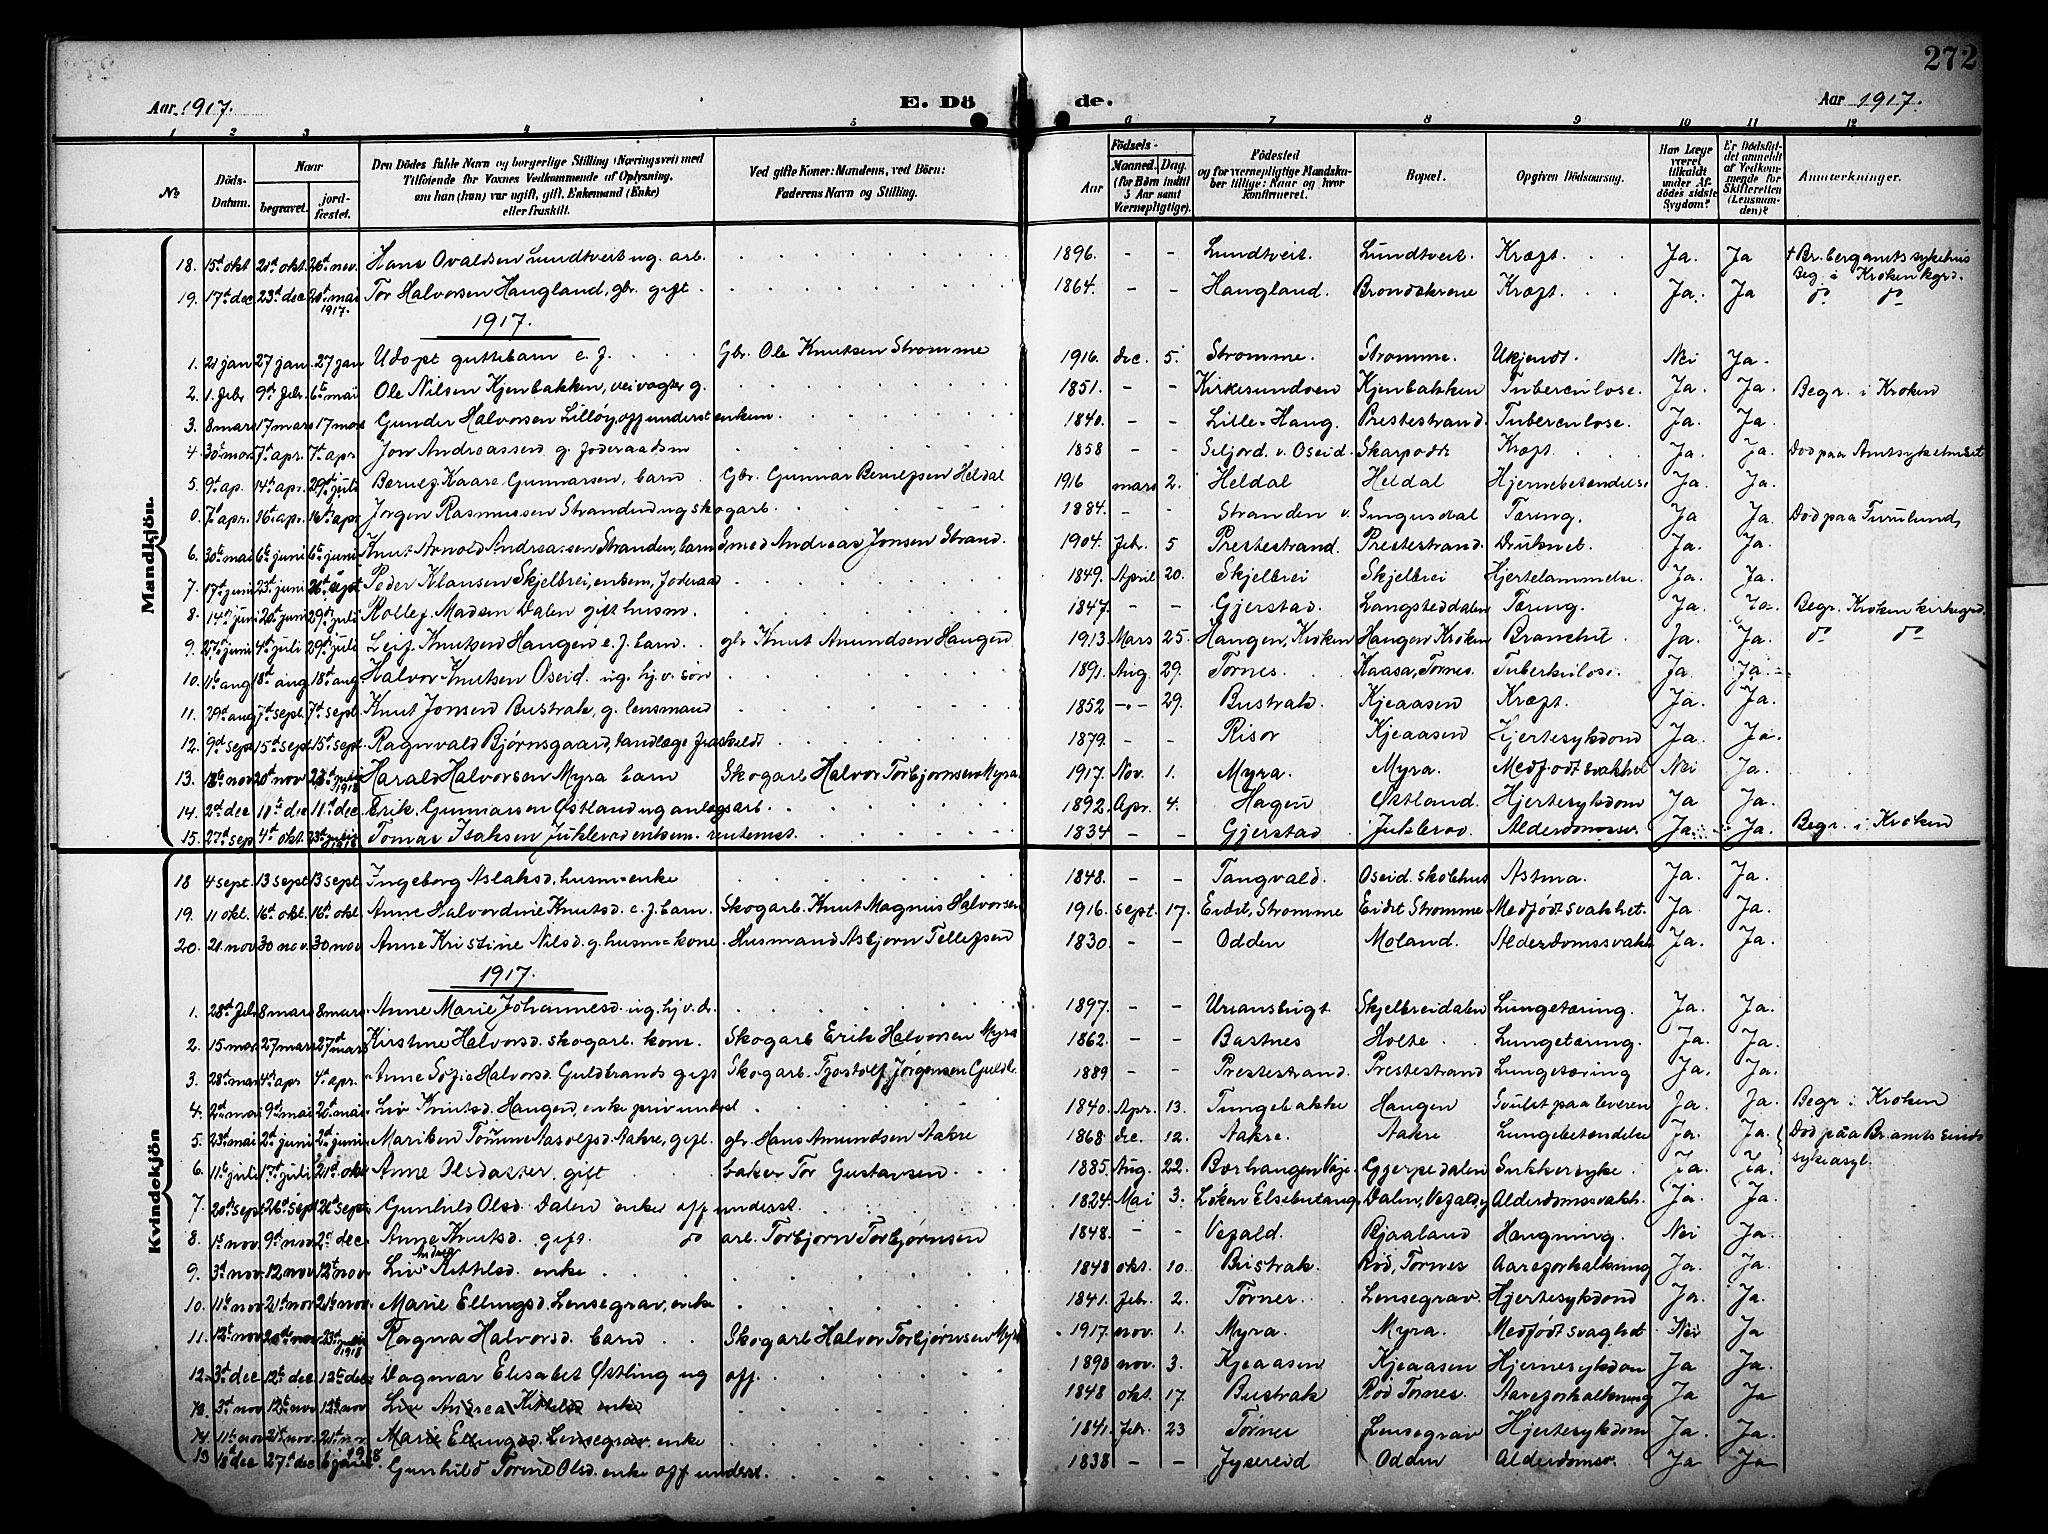 272
Aar 1917. E. Dö de. Aar 1917.
1 2 3 4 5 6 7 8 9 10 11 12
No
Döds-Datum.
Naar
begravet.
jord-fæstet.
Den Dödes fulde Navn og borgerlige Stilling (Næringsvei) med
Tilføiende for Voxnes Vedkommende af Oplysning,
om han (hun) var ugift, gift, Enkemand (Enke)
eller fraskilt.
Ved gifte Koner: Mandens, ved Börn:
Faderens Navn og Stilling.
Födsels-
Aar
Maaned. Dag.
(for Børn indtil
5 Aar samt
Værnepligtige).
Födested
og for værnepligtige Mandska-
ber tillige: Naar og hvor
konfirmeret.
Bopæl.
Opgiven Dödsaarsag.
Har Læge
været
tilkaldt
under Af-
dödes sidste
Sygdom?
Er Dödsfal-
det anmeldt
af Vedkom-
mende for
Skifteretten
(Lensman-
den)?
Anmærkninger.
Mandkjön.
18. 15d okt 21d okt 26d nov. Hans Ovaldsen Lundtveit ug. arb. 1896. – – Lundtveit. Lundtveit. Kræft. Ja. Ja + Br.bergamts sykehus
Beg. i Kroken kgrd.
19. 17d dec 23d dec 20d mai 1917. Tor Halvorsen Haugland, gbr. gift 1864. – – Haugland. Kræft. Ja. Ja do do
1917.
1. 21 jan 27 jan 27 jan Udøpt guttebarn e. f. Gbr. Ole Knutsen Strømme 1916. dec. 5. Strømme. Strømme. Ukjendt. Nei Ja.
2. 1. febr 9d febr. 6te mai Ole Nilsen Kjenbakken, veivogter g. 1851. – – Kirkesundveen Kjenbakken Tuberculose. Ja. Ja. Begr. i Kroken
3. 8 mars 17 mars 17 mars Gunder Halvorsen Lilløy off underst enkem. 1840. – – Lille-Haug. Prestestrand. Tuberculose. Ja. Ja.
4. 30 mars 7d apr. 7d apr Jon Andreassen g. Joderaadsm 1858 – – Seljord. v. Oseid. Skarpodt Kræft. Ja. Ja. Dod paa Amtsykehuset
5. 9d ap. 14d apr. 29d juli Berulf Kaare Gunnarsen, barn Gbr. Gunnar Berulfsen Heldal 1916 mars 2. Heldal Heldal Hjernebetændelse Ja. Ja.
0. 7d apr. 16d apr. 16d apr Jørgen Rasmussen Stranden ug skogarb. 1884. – – Stranden v. Singusdal Tæring. Ja Ja. Dod paa Furulund,
6. 30te mai 6te juni 6te juni Knut Arnold Andreassen Stranden, barn smed Andreas Jonsen Strand. 1904. febr. 5 Prestestrand. Prestestrand. Druknet. Ja. Ja.
7. 17d juni 23d juni 26d sept Peder Klausen Skjelbrei, enkem, Joderaad 1849. April 20. Skjelbrei Skjelbrei Hjertelammelse. Ja. Ja.
8. 14d juni 20d juni 29d juli Rollef Madsen Dalen gift husm. 1847. – – Gjerstad. Langsteddalen Tæring. Ja. Ja. Begr. Kroken kirkegrd.
9. 27d juni 4d juli 29d juli Leif Knutsen Haugen e. f. barn. gbr Knut Amundsen Haugen 1913 Mars 25. Haugen, Kroken Haugen Kroken Bronchit. Ja. Ja. do do
10. 11te aug 18d aug 18d aug Halvor Knutsen Oseid. ug. hj. v. søn 1891. Aug. 29. Tørnes. Kaasa, Tørnes. Tuberkulose. Ja. Ja.
11. 29d aug 7d sept. 7d sept. Knut Jonsen Bustrak, g. lensmand 1852 – 29. Bustrak. Kjeaasen Kræft. Ja. Ja.
12. 9d sept 15d sept 15d sept Ragnvald Bjørnsgaard, tandlæge fraskildt 1879. – – Risør Kjeaasen Hjertesykdom Ja. Ja.
13. 18te nov 20d nov 1918 Harald Halvorsen Myra barn Skogarb Halvor Torbjørnsen Myra 1917. Nov. 1. Myra. Myra. Medfødt svakhet Nei Ja.
14. 2d dec 11te dec 11d dec. Erik Gunnarsen Østland ug anlægsarb. 1892. Apr. 4. Hagen Østland. Hjertesykdom Ja Ja.
15. 27d sep 4d okt. 1918 Tomas Isaksen Juklerød enkem. rentenist. 1834 – – Gjerstad Juklerød. Alderdomssv. Ja. Ja. Begr. i Kroken
Kvindekjön
18 4 sept. 13 sept 13 sept. Ingeborg Aslaksd. husm-enke 1848. – – Tangvald. Oseid. skolehus Astma. Ja. Ja.
19. 11 okt. 16d okt. 16d okt Anne Halvordine Knutsd. e. f. barn. Skogarb. Knut Magnus Halvorsen 1916. sept. 17. Eidet, Strømme Eidet Strømme Medfødt svakhet. Ja. Ja.
20. 21. nov. 30 nov. 30 nov. Anne Kristine Nilsd. g. husm=kone Husmand Asbjørn Tellefsen 1830. – – Odden Moland. Alderdomssvakh Ja. Ja.
1917.
1. 28d feb 8 mars 8 mars. Anne Marie Johannesd. ug. hj v. d. 1897. – – Uriansbugt Skjelbreidalen Lungetæring. Ja. Ja.
2. 15 mar 27 mars 27d mars Kirstine Halvorsd. skogarb. kone Skogarb Erik Halvorsen Myra 1862. – – Bastnes Holte Lungetæring. Ja. Ja.
3. 28d mar 4d apr 4d apr. Anne Sofie Halvorsd. Guldbrands gift Skogarb. Tjostolf Jørgensen Guldb. 1889 – – Prestestrand. Prestestrand Lungetæring Ja. Ja.
4. 2d mai 9d mai 20d mai Liv Knutsd. Haugen, enke priv underst 1840. Apr. 13. Tungebakke Haugen Svulst paa leveren Ja. Ja. Begr. i Kroken
5. 23d mai 2d juni 2d juni Mariken Tomine Aasolfsd. Aakre, gift. gbr. Hans Amundsen Aakre 1868. dec. 12. Aakre. Aakre Lungebetændelse Ja. Ja. Dod paa Br. amts sinds
sykeasyl.
6. 11te juli 17d juli 21d okt Anne Olsdatter gift baker Tor Gustavsen 1885. Aug. 22. Gjerpedalen Sukkersyke. Ja. Ja.
7. 20d sept 26d sept 26d sept Gunhild Olsd. Dalen enke off underst. 1824. Mai 3. Dalen, Alderdomssvakh. Ja. Ja.
8. 1te nov. 9d nov 2d dec. Anne Knutsd. gift. do arb. Torbjørn Torbjørnsen 1848. – – Vefald. Bjaaland Hængning. Nei Ja.
9. 3d nov. 12 nov 12t nov. Liv Andrea Kittilsd. enke 1848 okt. 10. Bustrak. Rød, Tørnes Aareforkalkning Ja. Ja.
10. 11te nov 21d nov 21d nov. Marie Ellingsd. Lensegrav, enke 1841. febr. 2. Tørnes. Lensegrav. Hjertesykdom Ja. Ja.
11. 12t nov. 20d nov 1918 Ragna Halvorsd. barn Skogarb Halvor Torbjørnsen Myra 1917. nov. 1. Myra. Myra. Medfødt svaghet Nei Ja
12. 3d dec 12te dec 12te dec. Dagmar Elisabet Østling ug off. 1898 nov. 3. Kjeaasen Kjeaasen Hjernesykdom Ja Ja
13. 3d nov 12te nov. 12te nov Liv Andrea Kittilsd enke 1848 okt. 17. Bustrak Rød Tørnes. Aareforkalkning Ja Ja
14. 11te nov 21d nov. 21d nov Marie Ellingsd. Lensegrav. enke 1841. febr. 23 Tørnes Lensegrav Hjertesykdom Ja. Ja.
13 18d dec 27d dec 6 jan 1918. Gunhild Tomine Olsd. enke off underst. 1838 – – Odden Alderdomsv. Ja Ja